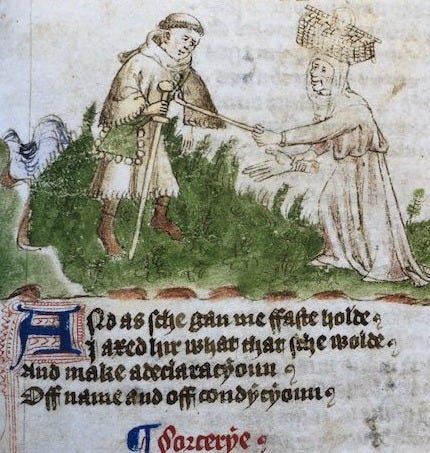 And as sche gan me ffaste holde
I axed hir what that sche wolde
And make a declaracyoun
Off name and off condycyoun
¶ Sorcerye